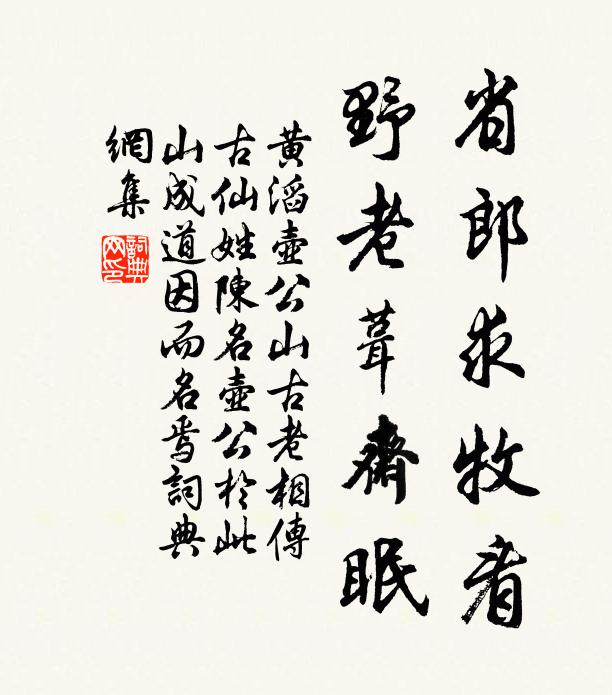 省郎求牧看
野老葺齋眠
黄滔壺公山古老相傳
古仙姓陳名壺公於此
山成道因而名焉詞典
網集
詞典
网印